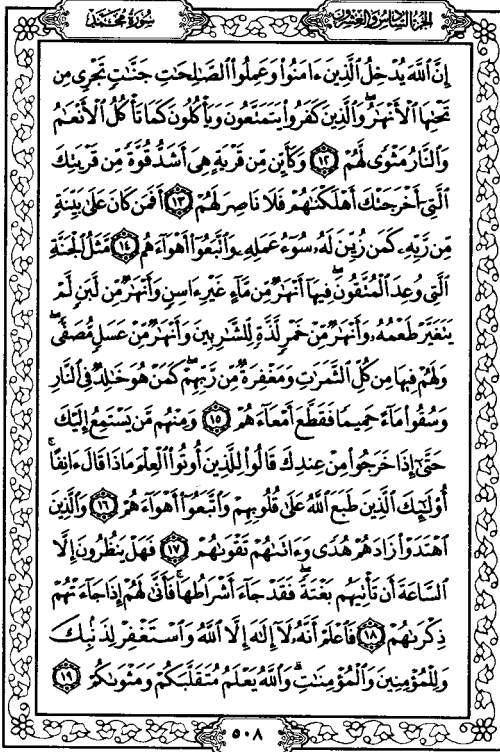 سُورَةُ مُحَمَّد
الجُزءُ السَّادِسُ وَالعِشرُون
إِنَّ ٱللَّهَ يُدۡخِلُ ٱلَّذِينَ ءَامَنُواْ وَعَمِلُواْ ٱلصَّٰلِحَٰتِ جَنَّٰتٖ تَجۡرِي مِن
تَحۡتِهَا ٱلۡأَنۡهَٰرُۖ وَٱلَّذِينَ كَفَرُواْ يَتَمَتَّعُونَ وَيَأۡكُلُونَ كَمَا تَأۡكُلُ ٱلۡأَنۡعَٰمُ
وَٱلنَّارُ مَثۡوٗى لَّهُمۡ ١٢ وَكَأَيِّن مِّن قَرۡيَةٍ هِيَ أَشَدُّ قُوَّةٗ مِّن قَرۡيَتِكَ
ٱلَّتِيٓ أَخۡرَجَتۡكَ أَهۡلَكۡنَٰهُمۡ فَلَا نَاصِرَ لَهُمۡ ١٣ أَفَمَن كَانَ عَلَىٰ بَيِّنَةٖ
مِّن رَّبِّهِۦ كَمَن زُيِّنَ لَهُۥ سُوٓءُ عَمَلِهِۦ وَٱتَّبَعُوٓاْ أَهۡوَآءَهُم ١٤ مَّثَلُ ٱلۡجَنَّةِ
ٱلَّتِي وُعِدَ ٱلۡمُتَّقُونَۖ فِيهَآ أَنۡهَٰرٞ مِّن مَّآءٍ غَيۡرِ ءَاسِنٖ وَأَنۡهَٰرٞ مِّن لَّبَنٖ لَّمۡ
يَتَغَيَّرۡ طَعۡمُهُۥ وَأَنۡهَٰرٞ مِّنۡ خَمۡرٖ لَّذَّةٖ لِّلشَّٰرِبِينَ وَأَنۡهَٰرٞ مِّنۡ عَسَلٖ مُّصَفّٗىۖ
وَلَهُمۡ فِيهَا مِن كُلِّ ٱلثَّمَرَٰتِ وَمَغۡفِرَةٞ مِّن رَّبِّهِمۡۖ كَمَنۡ هُوَ خَٰلِدٞ فِي ٱلنَّارِ
وَسُقُواْ مَآءً حَمِيمٗا فَقَطَّعَ أَمۡعَآءَهُمۡ ١٥ وَمِنۡهُم مَّن يَسۡتَمِعُ إِلَيۡكَ
حَتَّىٰٓ إِذَا خَرَجُواْ مِنۡ عِندِكَ قَالُواْ لِلَّذِينَ أُوتُواْ ٱلۡعِلۡمَ مَاذَا قَالَ ءَانِفًاۚ
أُوْلَٰٓئِكَ ٱلَّذِينَ طَبَعَ ٱللَّهُ عَلَىٰ قُلُوبِهِمۡ وَٱتَّبَعُوٓاْ أَهۡوَآءَهُمۡ ١٦ وَٱلَّذِينَ
ٱهۡتَدَوۡاْ زَادَهُمۡ هُدٗى وَءَاتَىٰهُمۡ تَقۡوَىٰهُمۡ ١٧ فَهَلۡ يَنظُرُونَ إِلَّا
ٱلسَّاعَةَ أَن تَأۡتِيَهُم بَغۡتَةٗۖ فَقَدۡ جَآءَ أَشۡرَاطُهَاۚ فَأَنَّىٰ لَهُمۡ إِذَا جَآءَتۡهُمۡ
ذِكۡرَىٰهُمۡ ١٨ فَٱعۡلَمۡ أَنَّهُۥ لَآ إِلَٰهَ إِلَّا ٱللَّهُ وَٱسۡتَغۡفِرۡ لِذَنۢبِكَ
وَلِلۡمُؤۡمِنِينَ وَٱلۡمُؤۡمِنَٰتِۗ وَٱللَّهُ يَعۡلَمُ مُتَقَلَّبَكُمۡ وَمَثۡوَىٰكُمۡ ١٩
٥٠٨